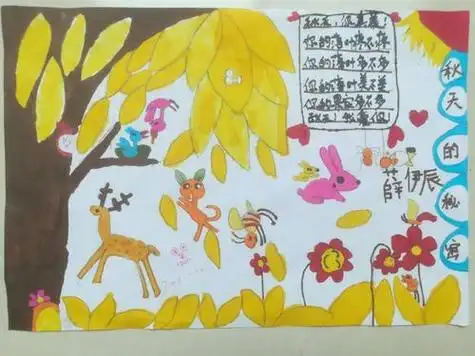 秋天，你真美！
你的落叶
你的落叶多不多
你的落叶美不美
你的果实多不多
秋天，我爱你
秋天的秘密
薛伊辰